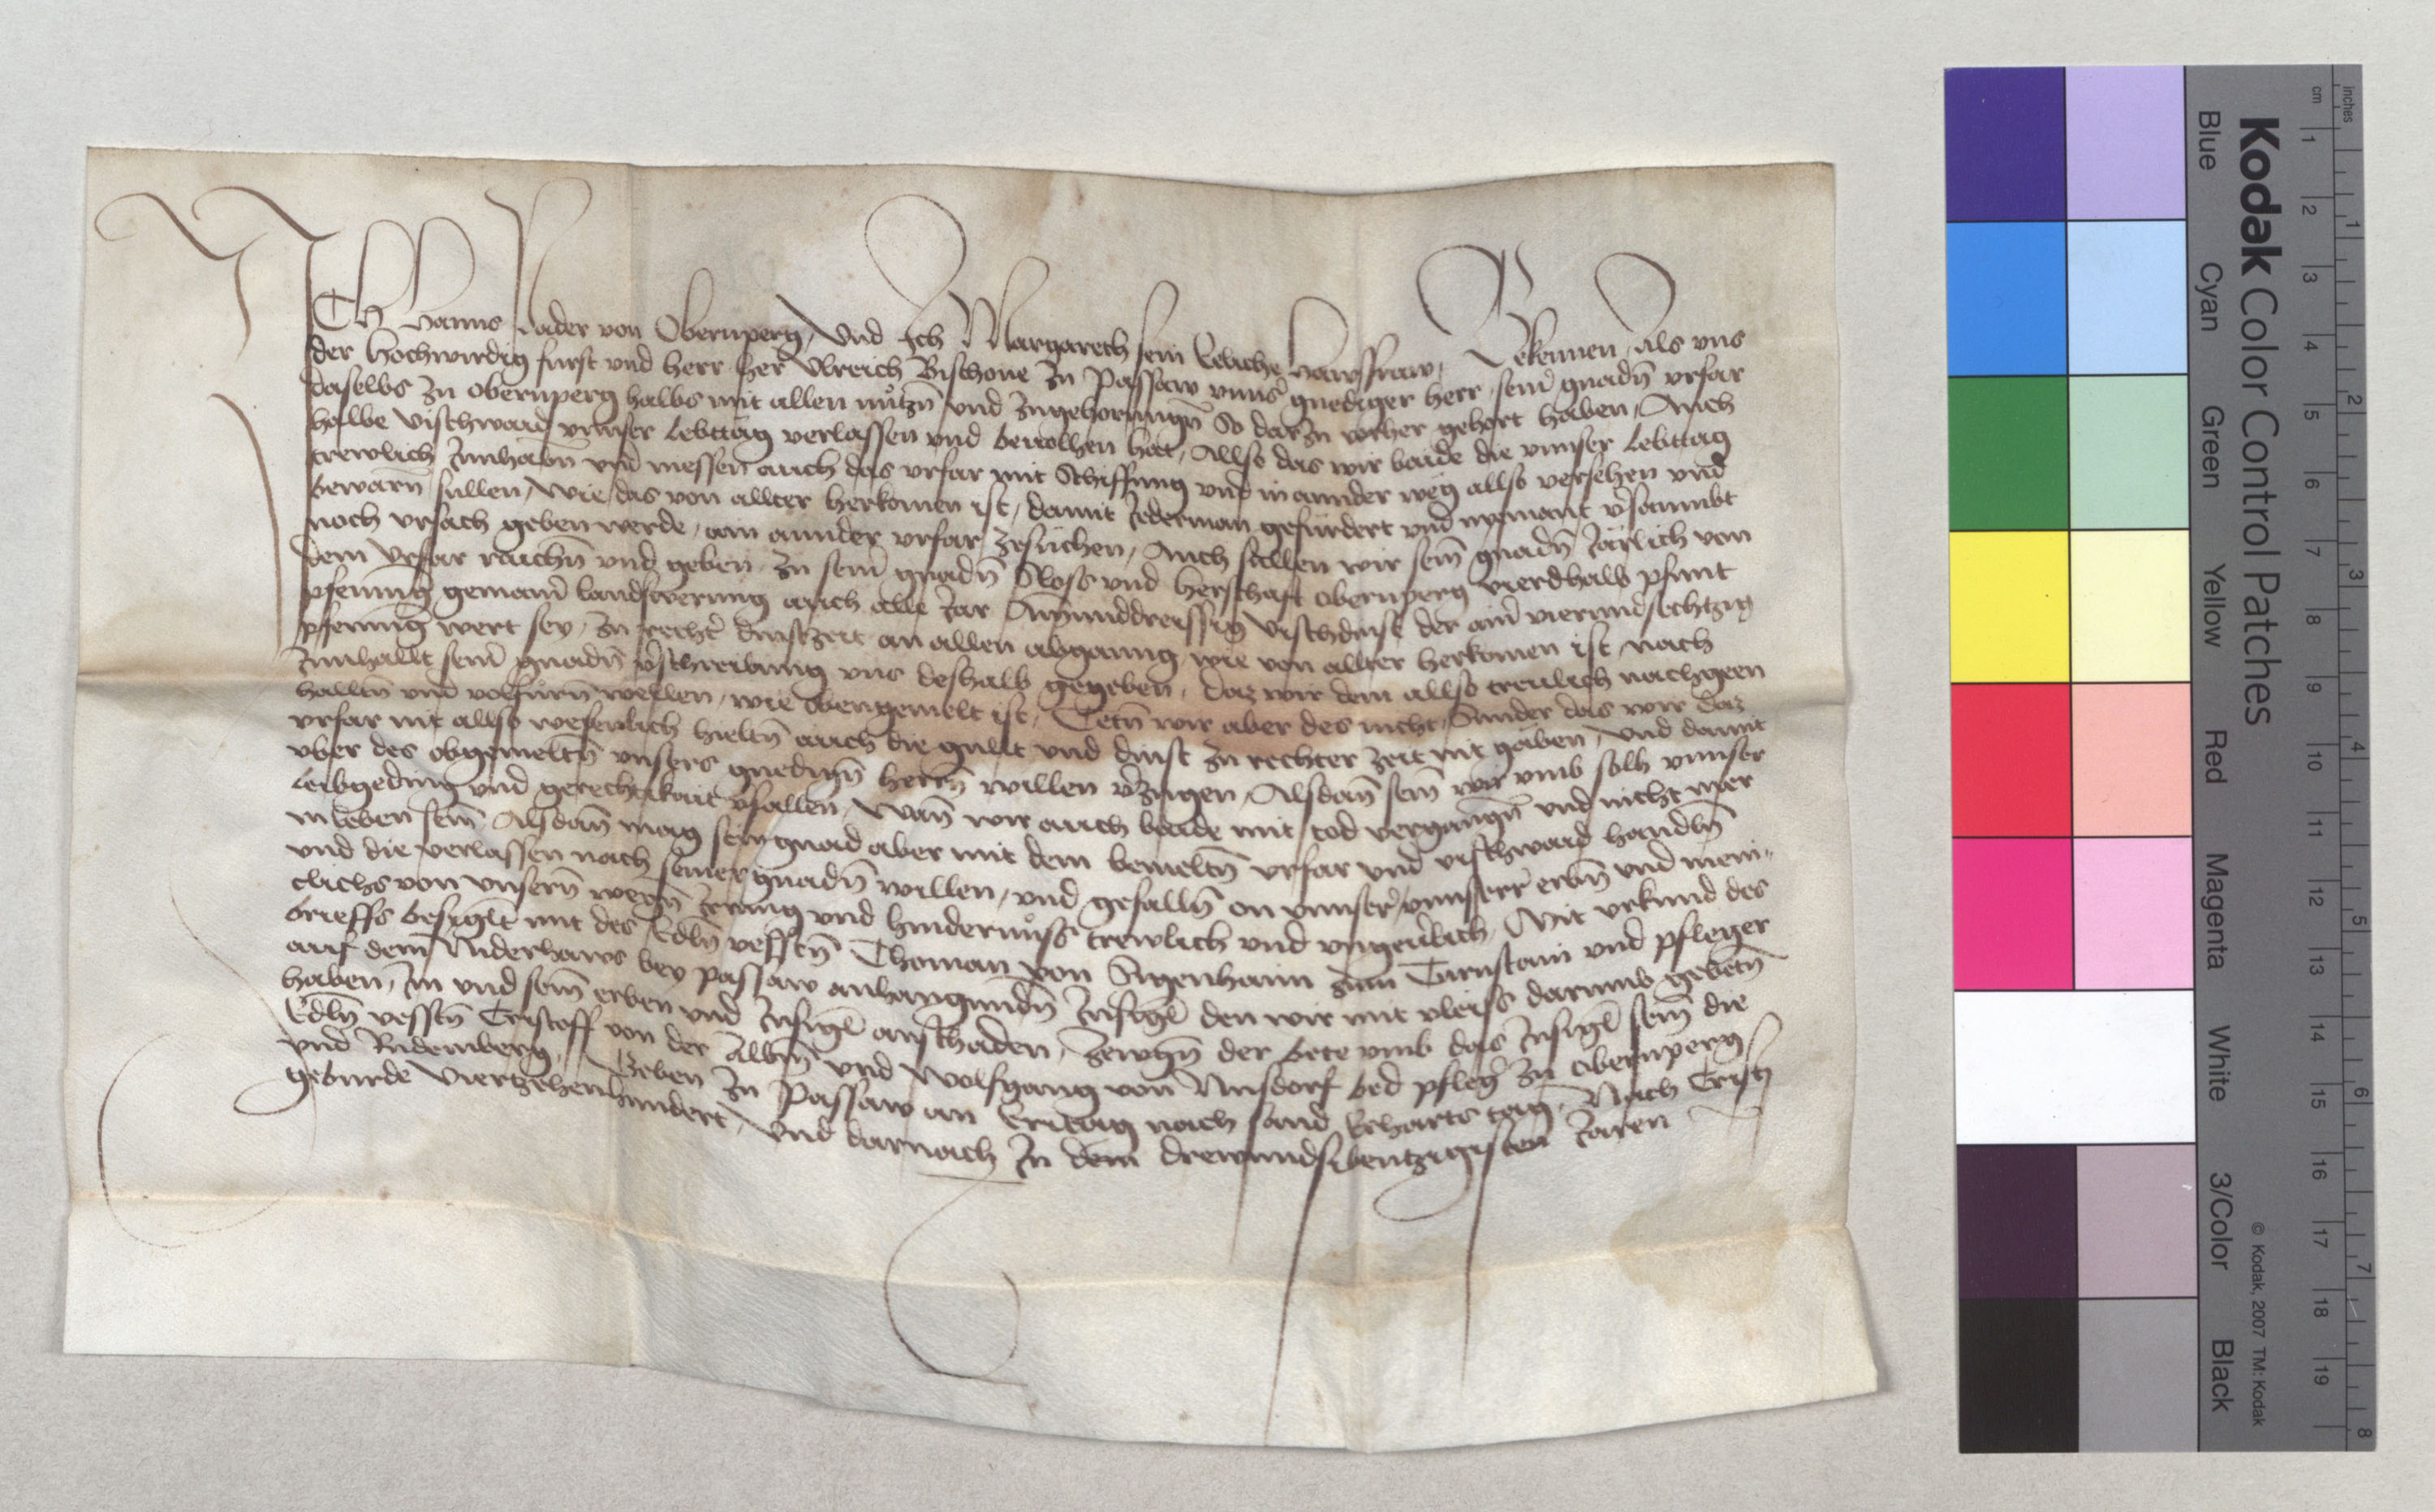 Ich Hanns Nader von Obernperg, Und Ich Margareth sein Eeliche hawsfraw, Bekennen, als vns
der hochwirdig furst vnd herr her Vlreich Bischoue zu Passaw vnnser gnediger herr, seiner gnadn̄ vrfar
daselbs zu Obernperg halbs mit allen nutzn̄ vnd zugehorungn̄ So darzu vorher gehort haben, Auch
halbe vischwaid vnnser lebttag verlassen vnd beuolhen hat, Allso das wir baide die vnnser lebttag
trewlich Innhabn̄ vnd niessen auch das vrfar mit Schiffung vnd in annder weg allso versehen vnd
bewarn̄ sullen, wie das von allter herkomen ist, damit Jederman gefurdert vnd nyemant v̄saumbt
noch vrsach geben werde, ain annder vrfar zesuchen, Auch sullen wir sein̄ gnadn̄ Järlich von
dem Vrfar raichn̄ vnd geben zu seinr̄ gnadn̄ Sloss vnd herschaft Obernperg vierdhalb pfunt
pfenning gemainr̄ landswerung auch alle Jar Ainunddreissig vischdinst der ainr̄ vierundsechtzig
pfenning wert sey, zu recht̄ dinstzeit an allen abganng, wie von allter herkomen ist, nach
Innhallt seinr̄ gnadn̄ v̄schreibung vns deshalb gegeben, daz wir dem allso treulich nachgeen
halltn̄ vnd volfurn̄ wellen, wie obengemelt ist, Tetn̄ wir aber des nicht, Sunder das wir daz
vrfar nit allso wesenlich hieltn̄ auch die gullt vnd dinst zu rechter zeit nit gaben, vnd damit
vber des obgemeltn̄ vnsers gnedign̄ herrn̄ willen v̄zugen, Alsdan̄ sein̄ wir vmb solh vnnser
leibgeding vnd gerechtikait v̄fallen, Wan̄ wir auch baide mit tod vergangn̄ vnd nicht mer
in leben sein̄ Alsdan̄ mag sein gnad aber mit dem bemeltn̄ vrfar vnd vischwaid handln̄
vnd die verlassen nach seiner gnadn̄ willen, vnd gefalln̄ on vnnser, vnnserr erbn̄ vnd meni-
clichs von vnsern̄ wegn̄ Irrung vnd hindernuss trewlich vnd vngeuerlich, Mit vrkund des
brieffs besiglt mit des Edln̄ vesstn̄ Thoman von Sigenhaim zum Turnstain vnd pfleger
auf dem Niderhaws bey passaw anhangundn̄ Insigl den wir mit vleiss darumb gebetn̄
haben, Im vnd sein̄ erben vnd Insigl an schaden, Zewgn̄ der bete vmb das Insigl sein̄ die
Edln̄ vesstn̄ Cristoff von der Albm̄ vnd Wolfgang von Nusdorf bed pfleger zu Obernperg
vnd Ridemberg, Geben zu Passaw an Eritag nach sand Erharts tag, Nach Cristi
geburde Viertzehenhundert, vnd darnach In dem drewundsibentzigisten Jaren
Kodak Color Control Patches
Blue Cyan Green Yellow Red Magenta White 3/Color Black
© Kodak, 2007 TM: Kodak
inches 1 2 3 4 5 6 7 8
cm 1 2 3 4 5 6 7 8 9 10 11 12 13 14 15 16 17 18 19